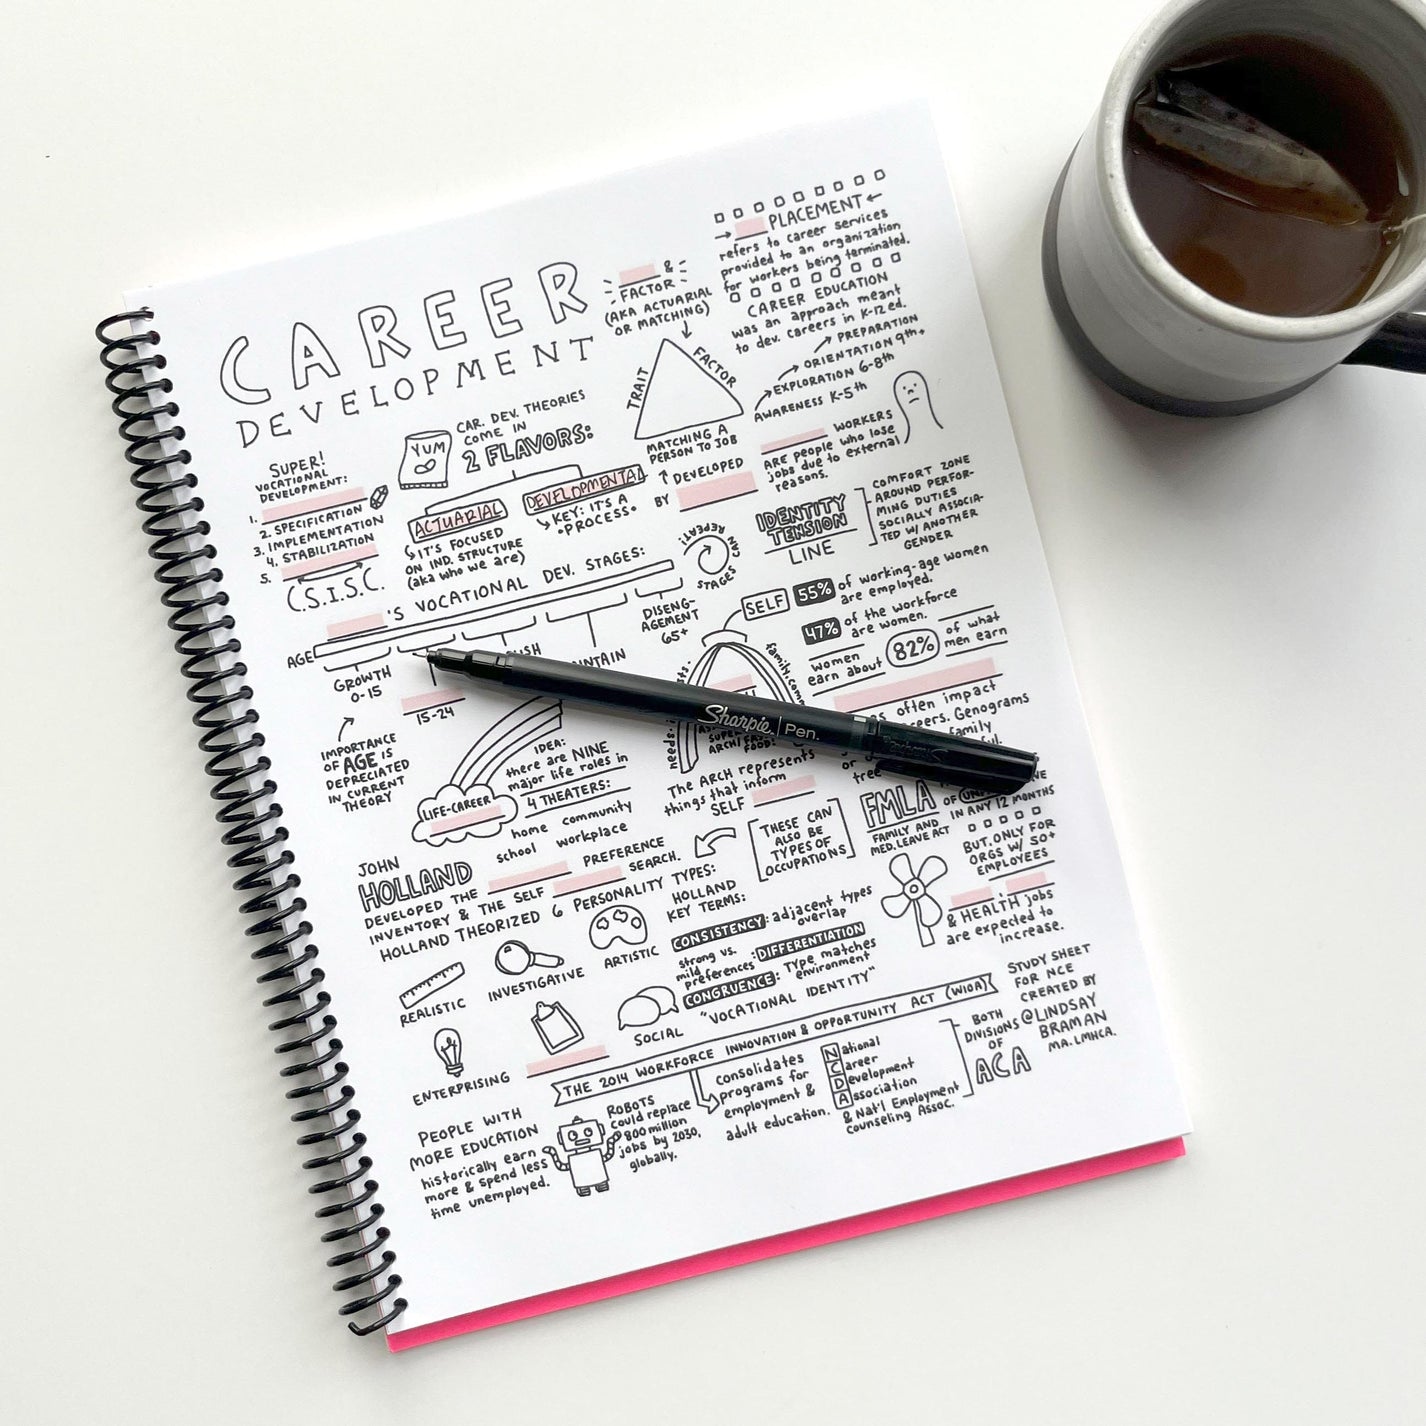 CAREER
DEVELOPMENT
SUPER!
VOCATIONAL
DEVELOPMENT:
1.
2. SPECIFICATION
3. IMPLEMENTATION
4. STABILIZATION
5.
C.S.I.S.C.
YUM
CAR. DEV. THEORIES
COME IN
2 FLAVORS:
ACTUARIAL
IT'S FOCUSED
ON IND. STRUCTURE
(aka who we are)
DEVELOPMENTAL
KEY: IT'S A
•PROCESS•
&
FACTOR
(AKA ACTUARIAL
OR MATCHING)
TRAIT
FACTOR
MATCHING A
PERSON TO JOB
DEVELOPED
BY
PLACEMENT
refers to career services
provided to an organization
for workers being terminated.
CAREER EDUCATION
was an approach meant
to dev. careers in K-12 ed.
PREPARATION
ORIENTATION 9th+
EXPLORATION 6-8th
AWARENESS K-5th
WORKERS
ARE people who lose
jobs due to external
reasons.
IDENTITY
TENSION
LINE
COMFORT ZONE
AROUND PERFOR-
MING DUTIES
SOCIALLY ASSOCIA-
TED W/ ANOTHER
GENDER
'S VOCATIONAL DEV. STAGES:
STAGES CAN REPEAT!
AGE
GROWTH
0-15
15-24
DISENG-
AGEMENT
65+
IMPORTANCE
OF AGE IS
DEPRECIATED
IN CURRENT
THEORY
SELF
55% of working-age women
are employed.
47% of the workforce
are women.
women
earn about 82% of what
men earn
often impact
Genograms
family
or
tree
Sharpie. Pen.
LIFE-CAREER
IDEA:
there are NINE
major life roles in
4 THEATERS:
home community
school workplace
The ARCH represents
things that inform
SELF
FMLA
FAMILY AND
MED. LEAVE ACT
OF
IN ANY 12 MONTHS
BUT, ONLY FOR
ORGS W/ 50+
EMPLOYEES
JOHN
HOLLAND
DEVELOPED THE PREFERENCE
INVENTORY & THE SELF SEARCH.
HOLLAND THEORIZED 6 PERSONALITY TYPES:
THESE CAN
ALSO BE
TYPES OF
OCCUPATIONS
REALISTIC
INVESTIGATIVE
ARTISTIC
ENTERPRISING
SOCIAL
HOLLAND
KEY TERMS:
CONSISTENCY: adjacent types
overlap
strong vs.
mild
preferences :DIFFERENTIATION
CONGRUENCE: Type matches
environment
"VOCATIONAL IDENTITY"
& HEALTH jobs
are expected to
increase.
THE 2014 WORKFORCE INNOVATION & OPPORTUNITY ACT (WIOA)
consolidates
programs for
employment &
adult education.
National
Career
Development
Association
& Nat'l Employment
Counseling Assoc.
BOTH
DIVISIONS
OF
ACA
STUDY SHEET
FOR NCE
CREATED BY
@LINDSAY
BRAMAN
MA. LMHCA.
PEOPLE WITH
MORE EDUCATION
historically earn
more & spend less
time unemployed.
ROBOTS
could replace
800 million
jobs by 2030,
globally.